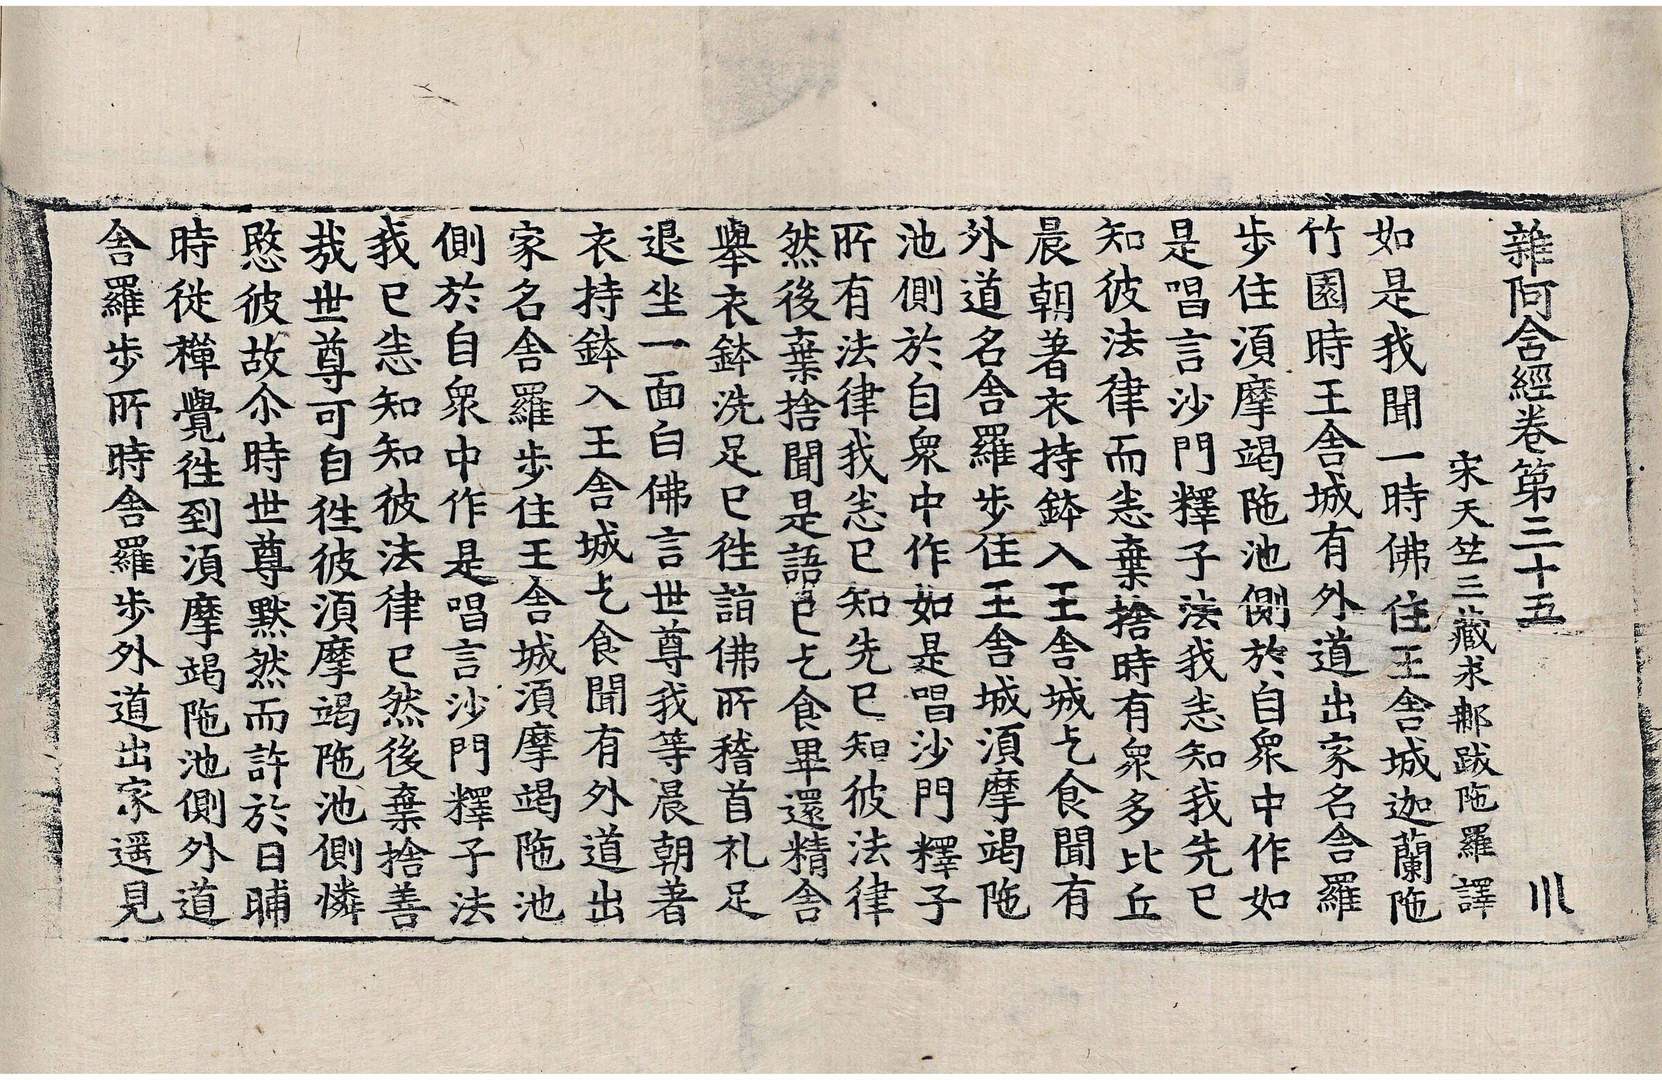 雜阿含經卷第三十五 川
宋天竺三藏求那跋陁羅譯
如是我聞一時佛住王舍城迦蘭陁
竹園時王舍城有外道出家名舍羅
步住須摩竭陁池側於自衆中作如
是唱言沙門釋子法我悉知我先已
知彼法律而悉棄捨時有衆多比丘
晨朝著衣持鉢入王舍城乞食聞有
外道名舍羅步住王舍城須摩竭陁
池側於自衆中作如是唱沙門釋子
所有法律我悉已知先已知彼法律
然後棄捨聞是語已乞食畢還精舍
舉衣鉢洗足已往詣佛所稽首礼足
退坐一面白佛言世尊我等晨朝著
衣持鉢入王舍城乞食聞有外道出
家名舍羅步住王舍城須摩竭陁池
側於自衆中作是唱言沙門釋子法
我已悉知知彼法律已然後棄捨善
哉世尊可自往彼須摩竭陁池側憐
愍彼故尒時世尊默然而許於日晡
時從禪覺往到須摩竭陁池側外道
舍羅步所時舍羅步外道出家遥見